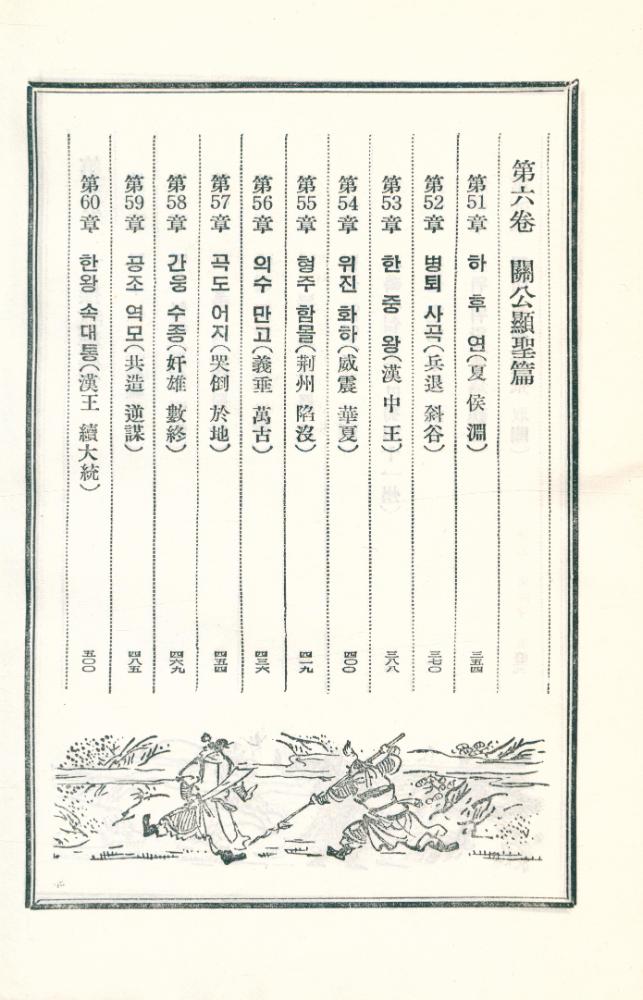 第六卷 關公顯聖篇
第51章 하 후 연(夏 侯 淵) 三五四
第52章 병퇴 사곡(兵退 斜谷) 三七〇
第53章 한 중 왕(漢 中 王) 三八八
第54章 위진 화하(威震 華夏) 四〇〇
第55章 형주 함몰(荊州 陷沒) 四一九
第56章 의수 만고(義垂 萬古) 四三六
第57章 곡도 어지(哭倒 於地) 四五四
第58章 간웅 수종(奸雄 數終) 四六九
第59章 공조 역모(共造 逆謀) 四八五
第60章 한왕 속대통(漢王 續大統) 五〇〇